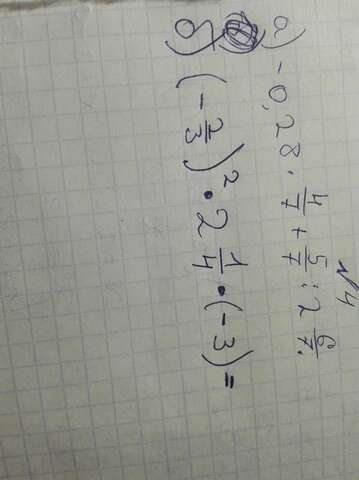 №4
а) -0,28 · 4/7 + 5/7 : 2 6/7.
б) (-2/3)² · 2 1/4 · (-3) =